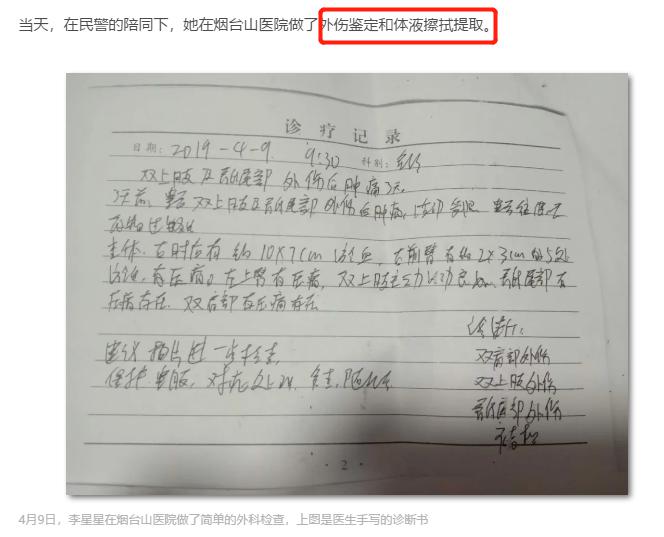 当天，在民警的陪同下，她在烟台山医院做了外伤鉴定和体液擦拭提取。
诊疗记录
日期：2019-4-9 9:30 科别：
双上肢及骶尾部外伤后肿痛3天
3天前，双上肢及骶尾部外伤后肿痛，活动
右肘后有约10×7cm瘀血，右前臂有约2×3cm的5处
瘀血，有压痛。左上臂有压痛，双上肢主动活动良好，骶尾部有
压痛存在，双肩部有压痛存在
诊断：
建议拍片进一步检查，
双肩部外伤
双上肢外伤
骶尾部外伤
· 2 ·
4月9日，李星星在烟台山医院做了简单的外科检查，上图是医生手写的诊断书